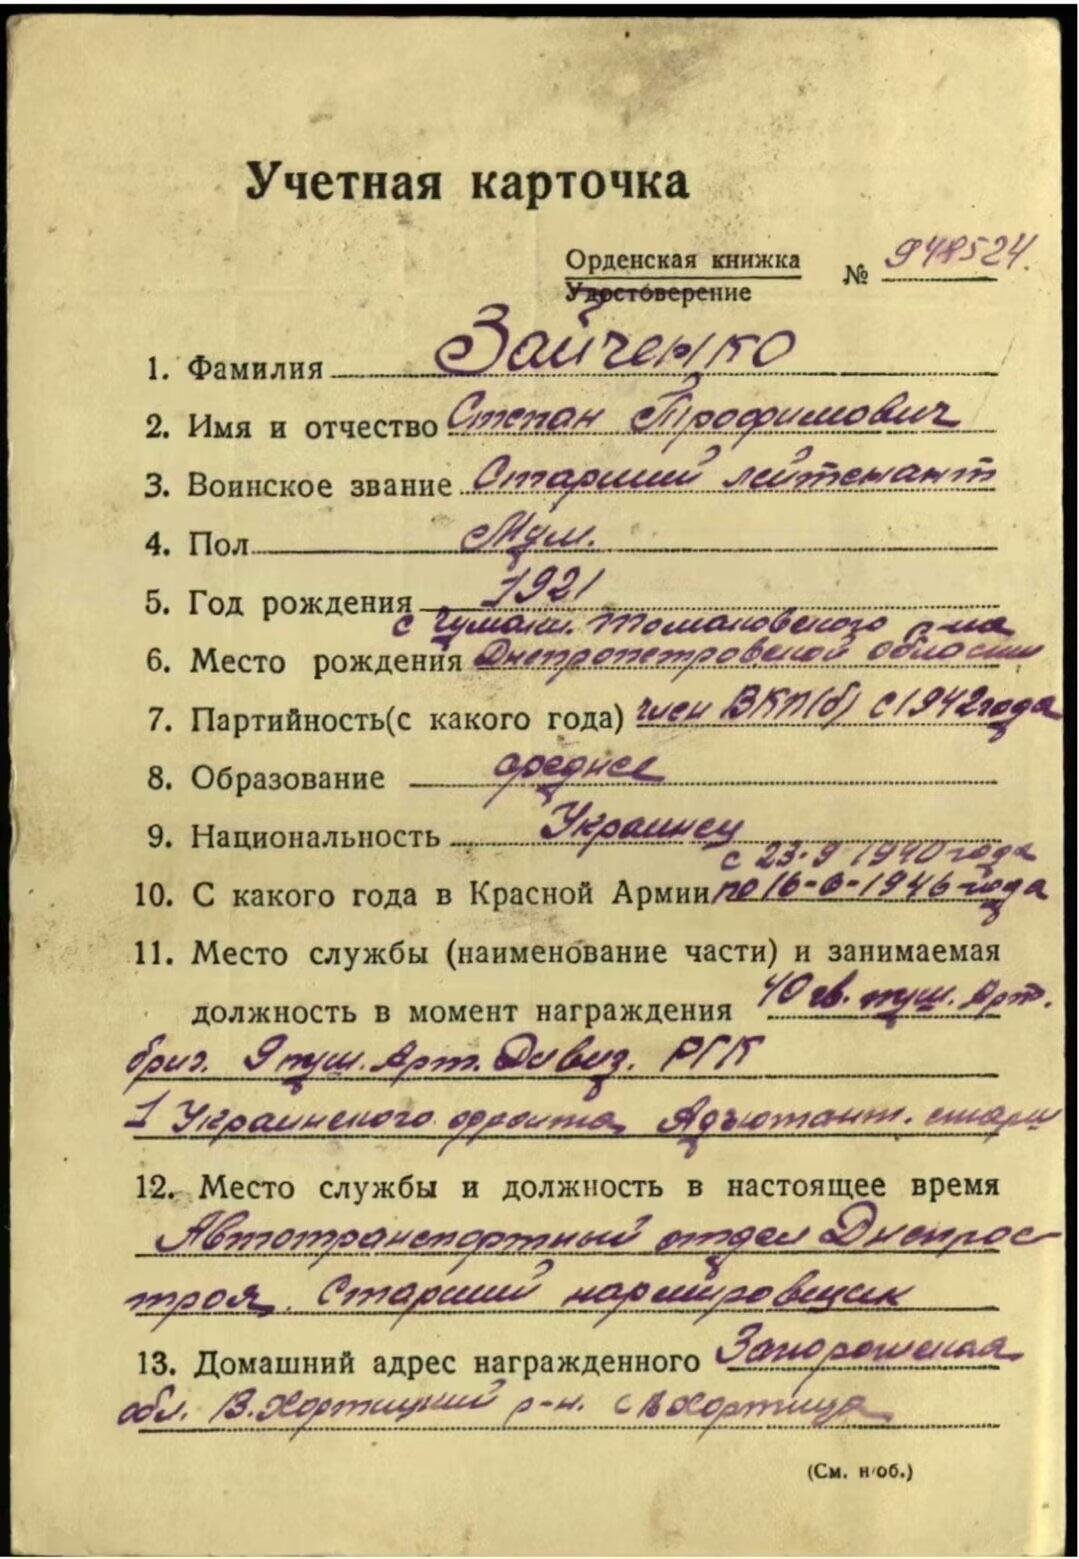 Учетная карточка
Орденская книжка
Удостоверение
№ 948524.
1. Фамилия Зайченко
2. Имя и отчество Степан Трофимович
3. Воинское звание Старший лейтенант
4. Пол Муж.
5. Год рождения 1921
с Чумаки. Томаковского р-на
6. Место рождения Днепропетровской области
7. Партийность(с какого года) член ВКП(б) с 1942 года
8. Образование среднее
9. Национальность Украинец
с 23-9 1940 года
10. С какого года в Красной Армии по 16-6-1946 года
11. Место службы (наименование части) и занимаемая
должность в момент награждения 40 гв. пуш. Арт.
бриг. 9 пуш. Арт. Дивиз. РГК
1 Украинского фронта, Адъютант. старш
12. Место службы и должность в настоящее время
Автотранспортный отдел Днепрос-
троя. Старший нормировщик
13. Домашний адрес награжденного Запорожская
обл. В.Хортицкий р-н. с В Хортица
(См. н/об.)